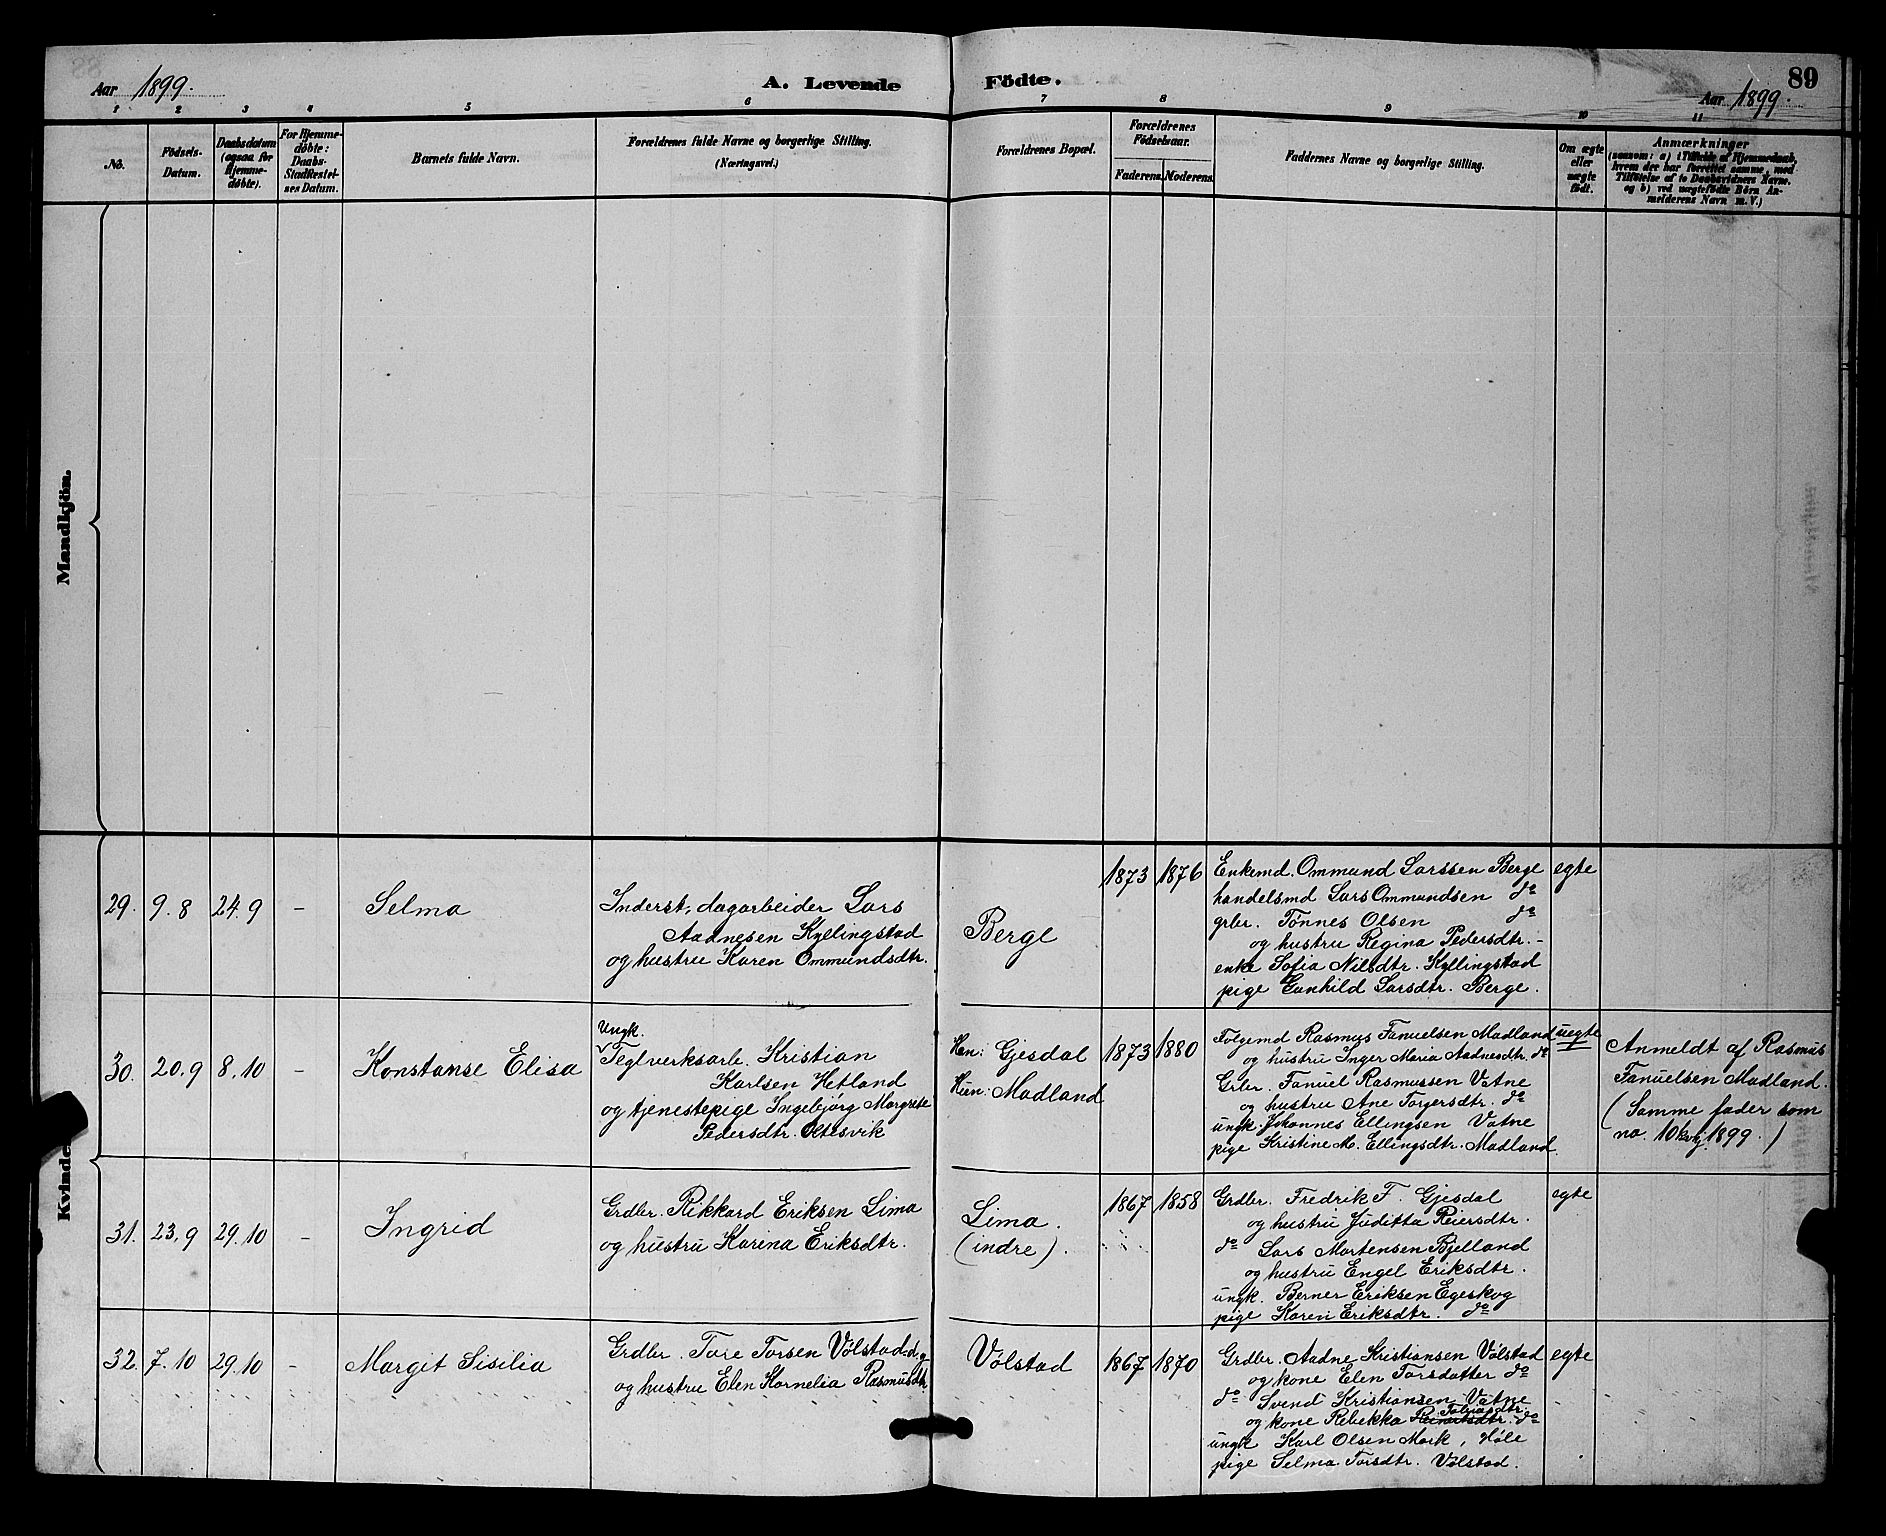 Aar 1899.
A. Levende Födte.
89
Aar 1899.
1 2 3 4 5 6 7 8 9 10 11
No.
Födsels-
Datum.
Daabsdatum
(ogsaa for
Hjemme-
døbte).
For Hjemme-
døbte:
Daabs-
Stadfæstel-
ses Datum.
Barnets fulde Navn.
Forældrenes fulde Navne og borgerlige Stilling.
(Næringsvei.)
Forældrenes Bopæl.
Forældrenes
Fødselsaar.
Faderens. Moderens.
Faddernes Navne og borgerlige Stilling.
Om ægte
eller
uægte
født.
Anmærkninger
(saasom: a) i Tilfælde af Hjemmedaab,
hvem der har forrettet samme, med
Tilføielse af to Daabsvidners Navne,
og b) ved uægtefødte Børn An-
melderens Navn m. V.)
Mandkjön.
Kvinde
29. 9.8 24.9 – Selma
Inderst, dagarbeider Lars
Aadnesen Kyllingstad
og hustru Karen Ommundsdtr.
Berge
1873 1876
Enkemd. Ommund Larssen Berge
handelsmd Lars Ommundsen do
grbr. Tønnes Olsen do
og hustru Regina Pedersdtr. –
enke Sofia Nilsdtr. Kyllingstad
pige Gunhild Larsdtr. Berge.
egte
30. 20.9 8.10 – Konstanse Elisa
Ungk.
Teglverksarb. Kristian
Karlsen Hetland
og tjenestepige Ingebjørg Margrete
Pedersdtr. Oltesvik
Han: Gjesdal
Hun: Madland
1873 1880
Følgemd Rasmus Fanuelsen Madland
og hustru Inger Maria Aadnesdtr. do
Grbr. Fanuel Rasmussen Vatne
og hustru Ane Torgersdtr. do
ungk. Johannes Ellingsen Vatne
pige Kristine M. Ellingsdtr. Madland.
uegte
Anmeldt af Rasmus
Fanuelsen Madland.
(Samme fader som
no. 10 kvkj. 1899.)
31. 23.9 29.10 – Ingrid
Grdbr. Rikkard Eriksen Lima
og hustru Karina Eriksdtr.
Lima.
(indre).
1867 1858
Grdbr. Fredrik F. Gjesdal
og hustru Juditta Reiersdtr.
do Lars Mortensen Bjelland
og hustru Engel Eriksdtr.
ungk. Berner Eriksen Egeskog
pige Karen Eriksdtr. do
egte
32. 7.10 29.10 – Margit Sisilia
Grdbr. Tore Torsen Vølstad
og hustru Elen Kornelia Rasmusdtr
Vølstad
1867 1870
Grdbr. Aadne Kristiansen Vølstad
og kone Elen Torsdatter do
do Svend Kristiansen Vatne
Tobiasdtr.
og kone Rebekka Reinertsdtr. do
ungk Karl Olsen Mork, Høle
pige Selma Torsdtr. Vølstad.
egte